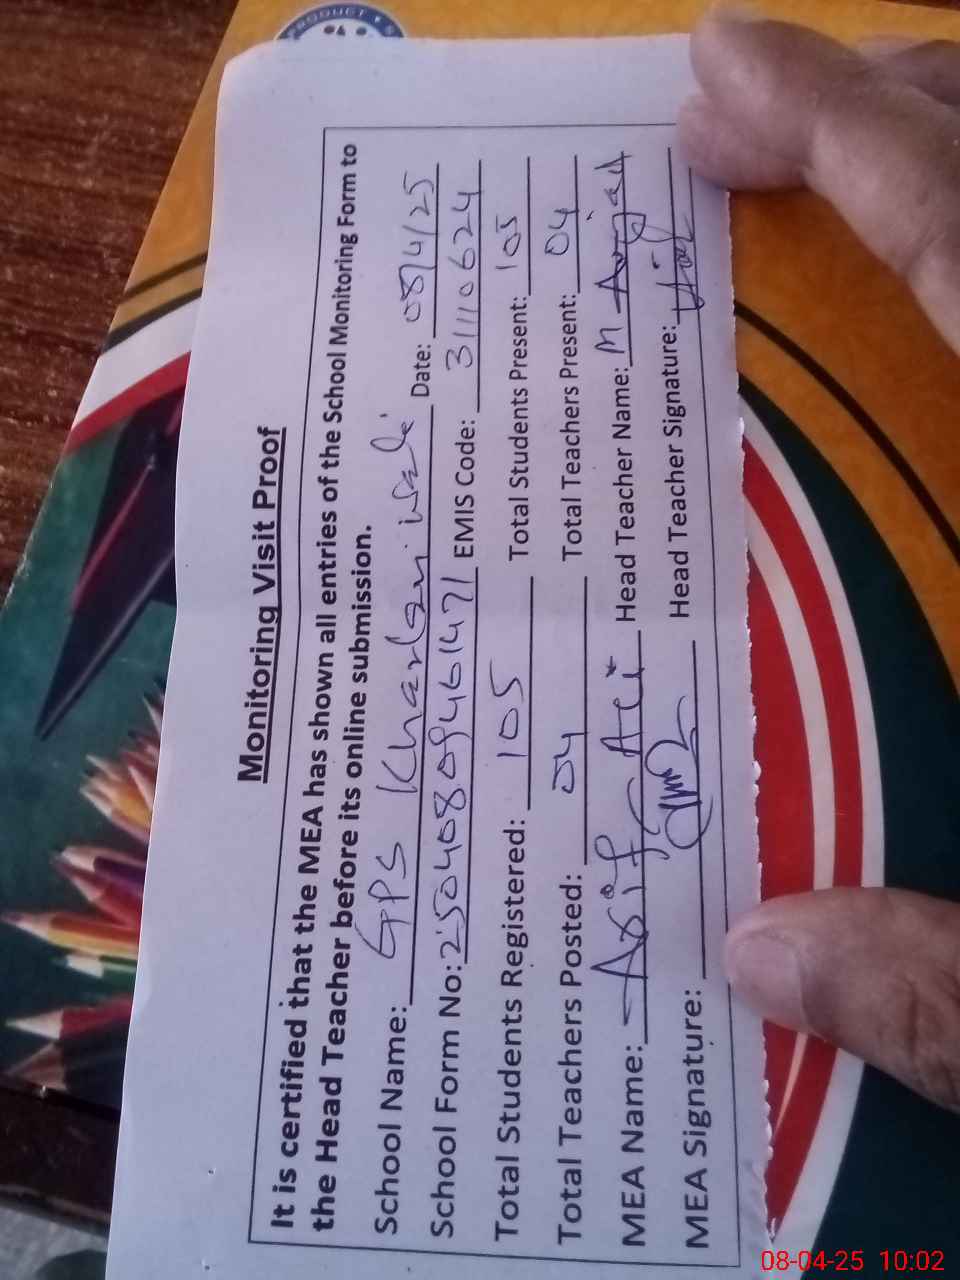 PRODUCT
Monitoring Visit Proof
It is certified that the MEA has shown all entries of the School Monitoring Form to
the Head Teacher before its online submission.
School Name: GPS Kharlanwala Date: 08/4/25
School Form No: 250408094661471 EMIS Code: 31110624
Total Students Registered: 105 Total Students Present: 105
Total Teachers Posted: 04 Total Teachers Present: 04
MEA Name: Asif Ali Head Teacher Name: M Amjad
MEA Signature: Head Teacher Signature:
08-04-25 10:02